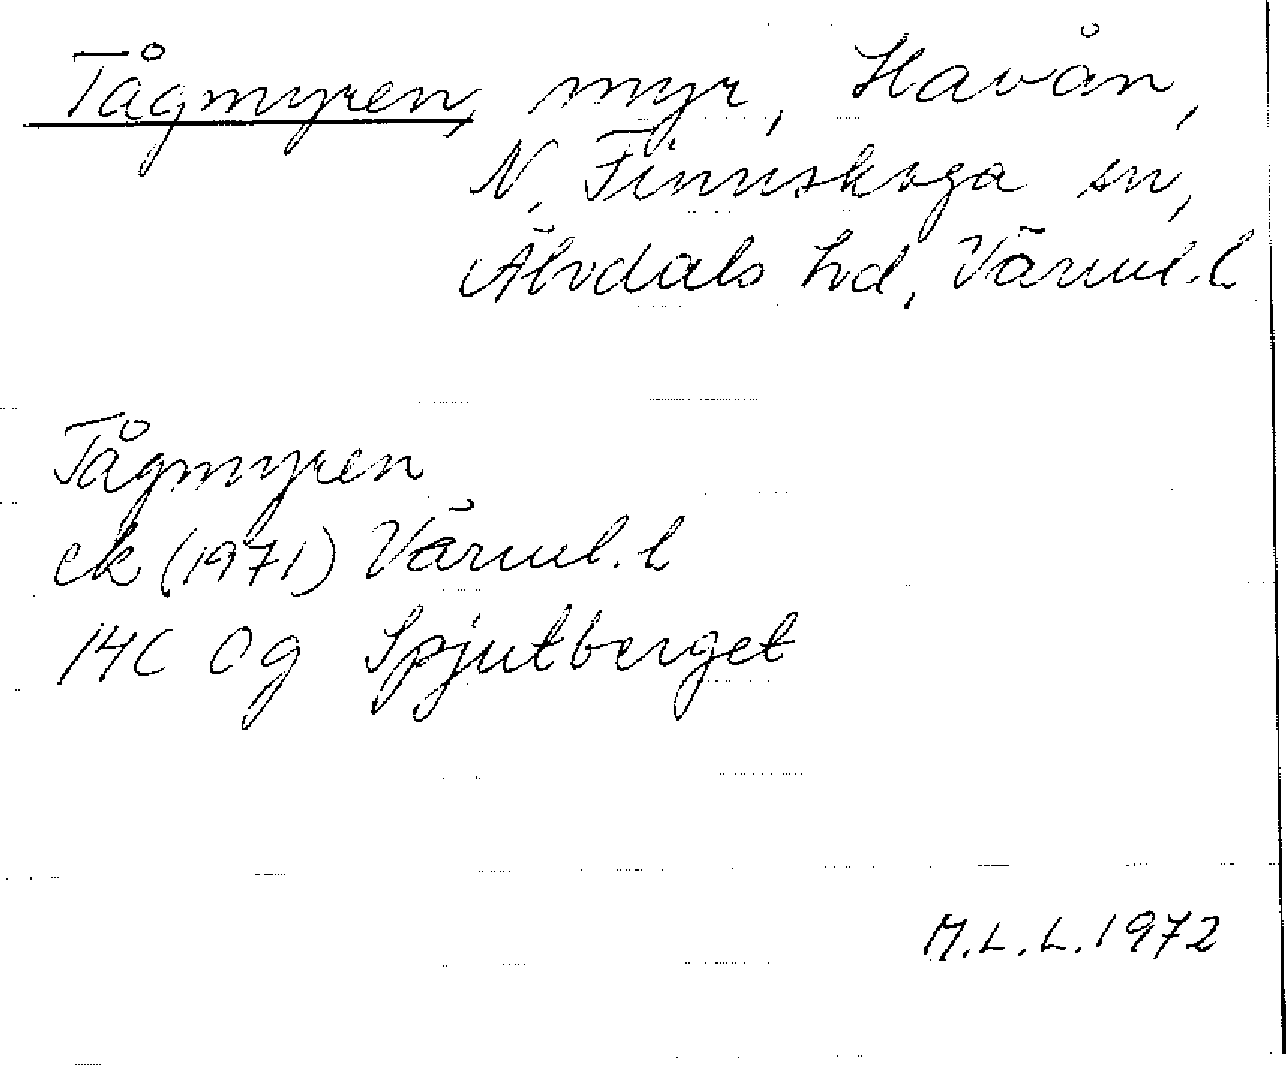 Tågmyren, myr, Havån,
N. Finnskoga sn,
Älvdals hd, Värml. l
Tågmyren
ek (1971) Värml. l
14C 0g Spjutberget
M.L.L. 1972